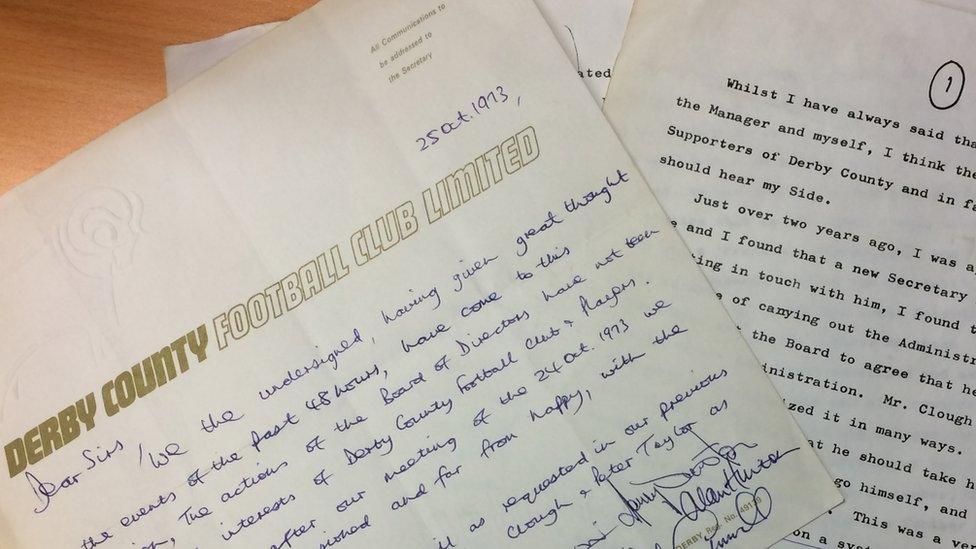 All Communications to
be addressed to
the Secretary
25 Oct. 1973,
DERBY COUNTY FOOTBALL CLUB LIMITED
Dear Sirs
We the undersigned, having given great thought
the events of the past 48 hours, have come to this
The actions of the Board of Directors have not been
interests of Derby County Football Club & Players.
after our meeting of the 24 Oct. 1973 we
and far from happy, with the
as requested in our previous
Clough & Peter Taylor as
DERBY Reg. No. 49139
ated
1
Whilst I have always said tha
the Manager and myself, I think the
Supporters of Derby County and in fa
should hear my Side.
Just over two years ago, I was a
e and I found that a new Secretary
ting in touch with him, I found t
e of carrying out the Administr
t the Board to agree that he
inistration. Mr. Clough
ized it in many ways.
at he should take h
go himself, and
This was a ver
on a sys